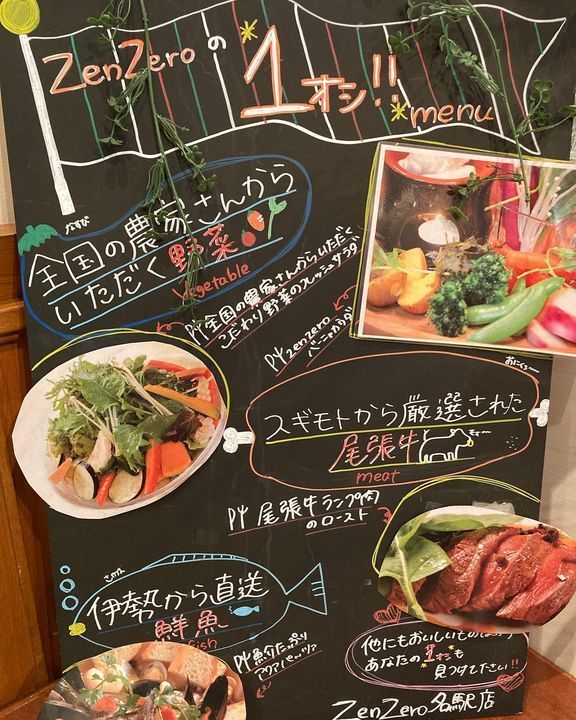 ZenZeroの
1オシ!! menu
なすび
全国の農家さんから
いただく 野菜
Vegetable
P4 全国の農家さんからいただく
こだわり野菜のフレッシュサラダ
P4 ZenZero
バーニャカウダ
おにく〜
スギモトから厳選された
尾張牛
meat
P4 尾張牛ランプ肉
のロースト
さかな
伊勢から直送
鮮魚
fish
P4 魚介たっぷり
アクアパッツァ
他にもおいしいもの
あなたの1オシも
見つけて下さい!!
ZenZero 名駅店